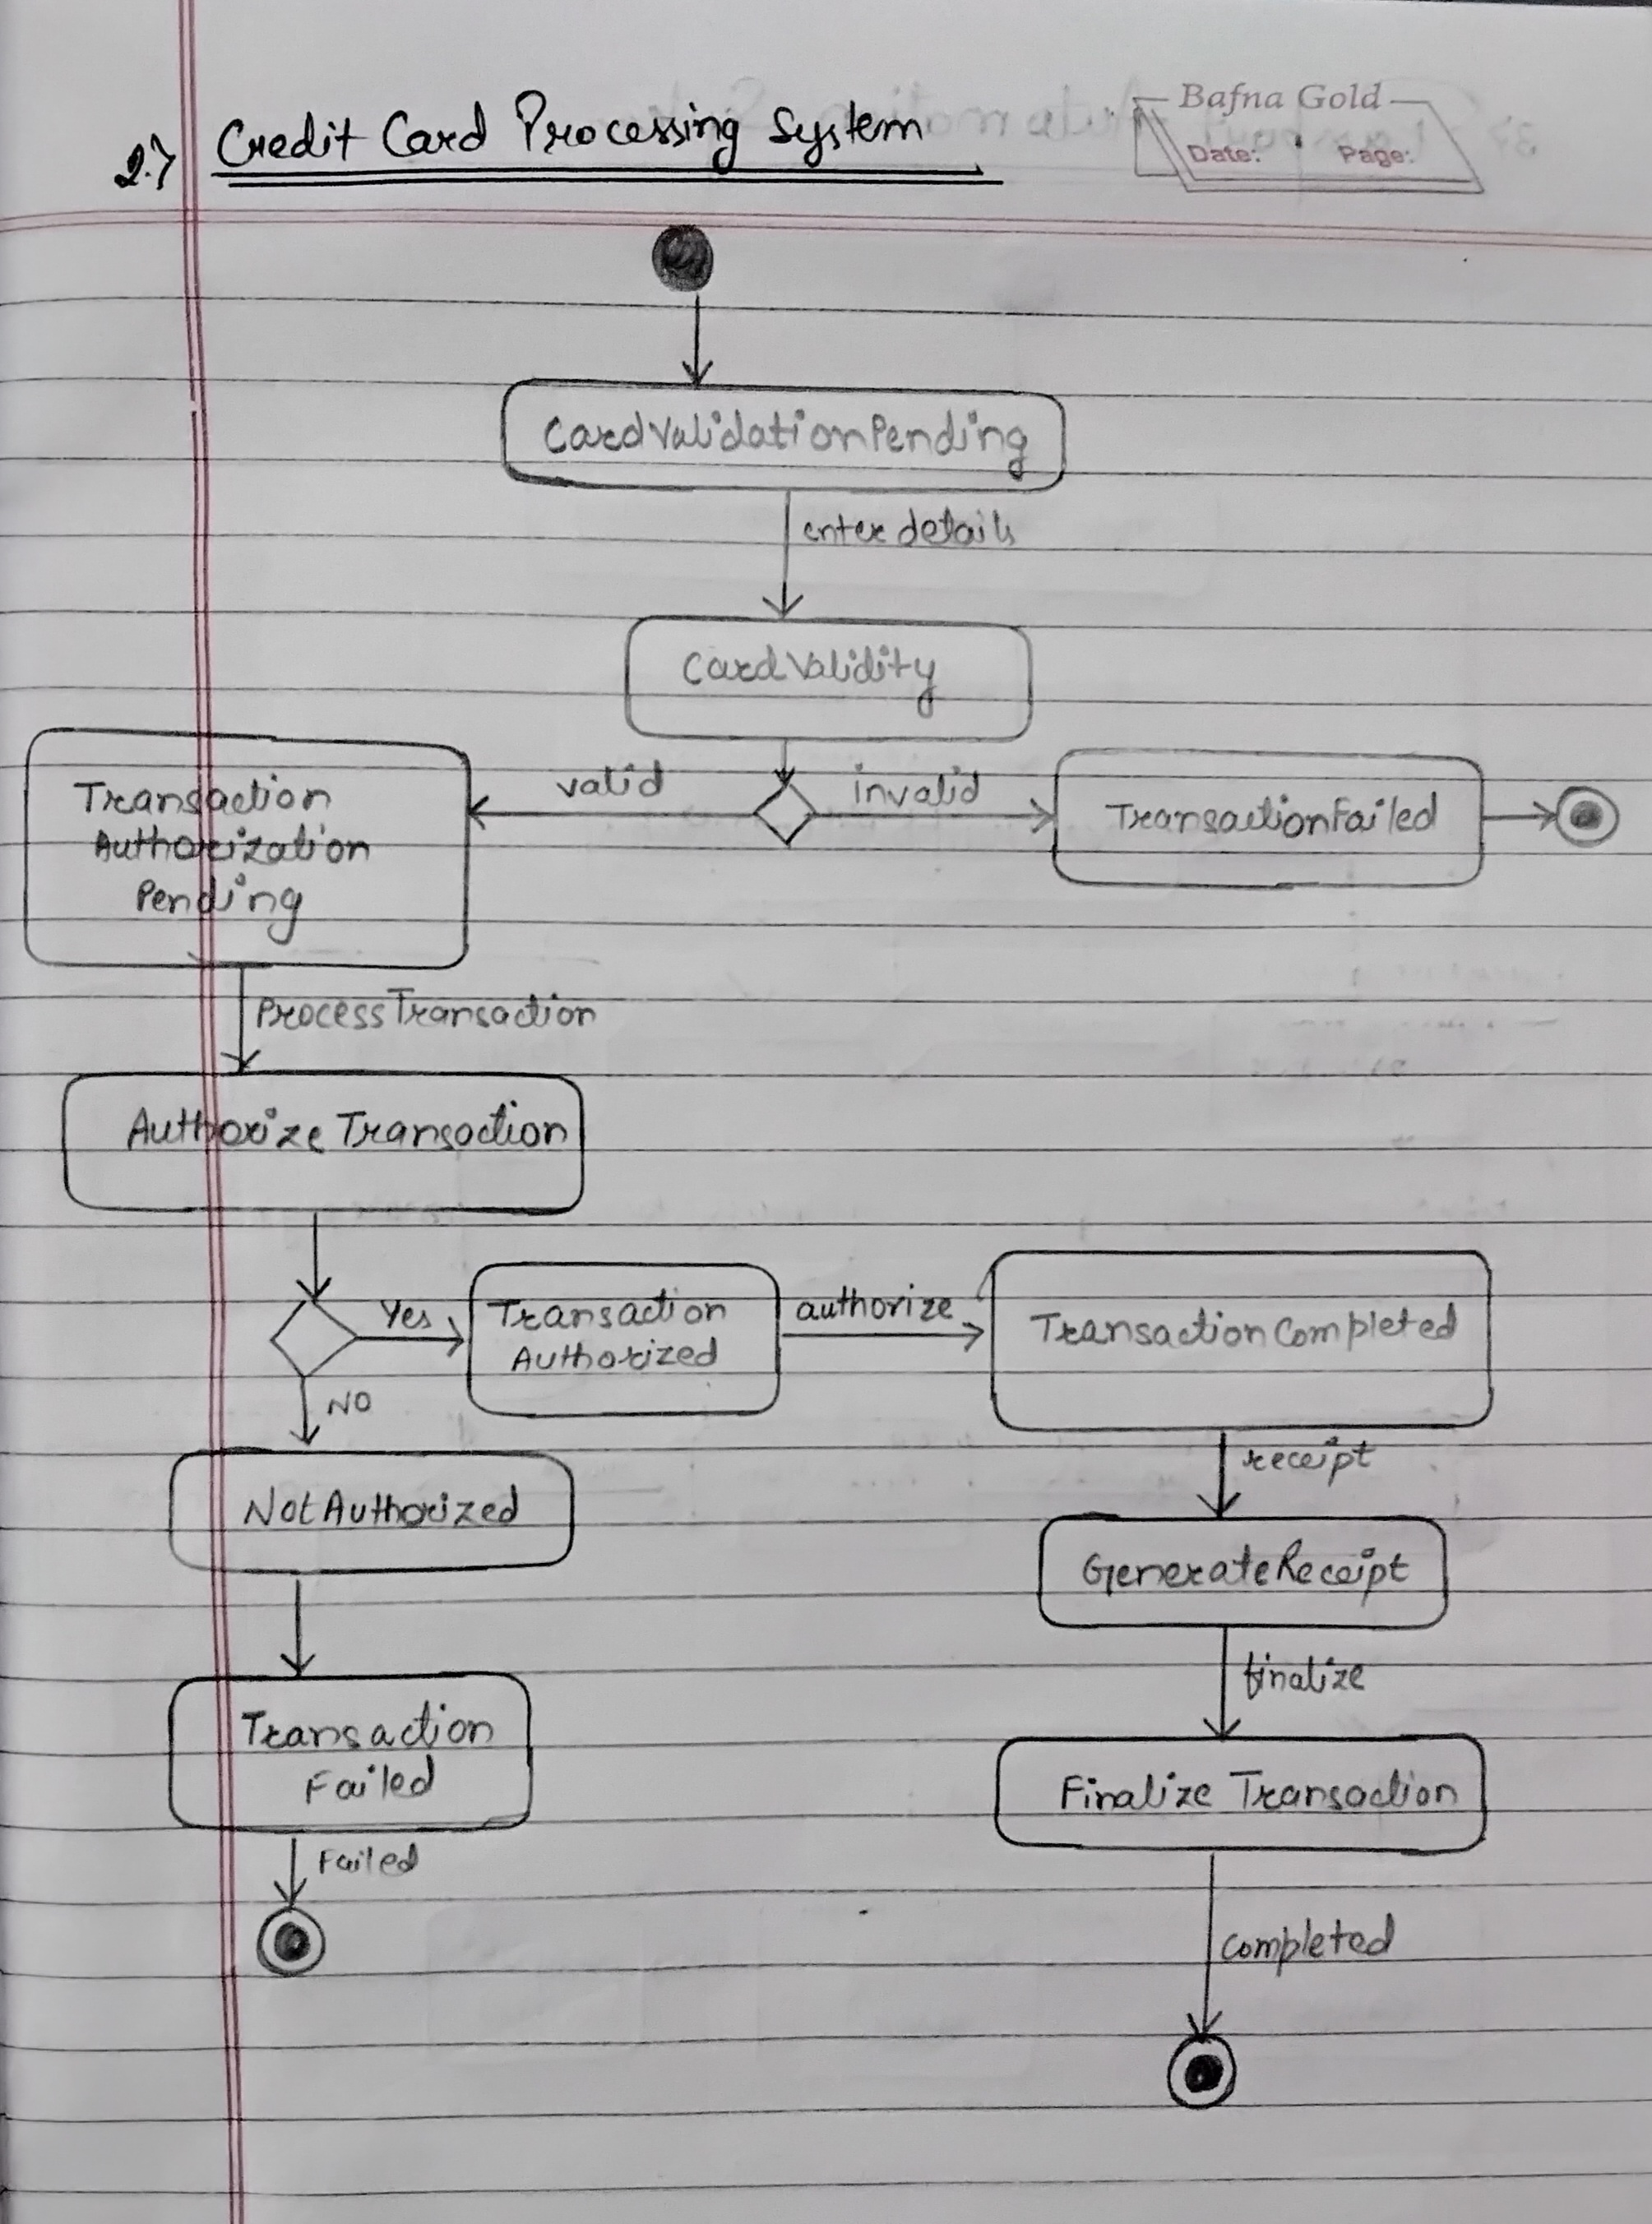 2.7 Credit Card Processing System
Bafna Gold
Date: Page:
CardValidationPending
enter details
CardValidity
valid
invalid
Transaction
Authorization
Pending
TransactionFailed
ProcessTransaction
Authorize Transaction
Yes
Transaction
Authorized
authorize
TransactionCompleted
NO
receipt
NotAuthorized
GenerateReceipt
finalize
Transaction
Failed
Finalize Transaction
Failed
completed